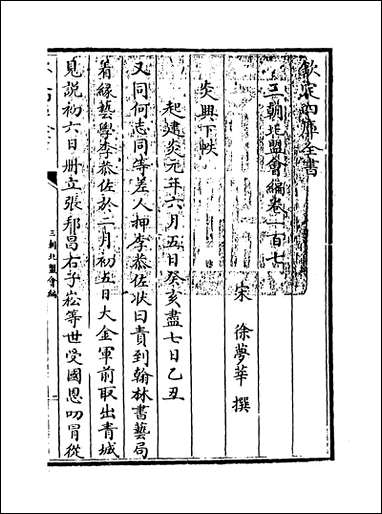 欽定四庫全書
三朝北盟會編卷一百七
宋 徐夢莘 撰
炎興下帙
起建炎元年六月五日癸亥盡七日乙丑
又同何志同等差人押李恭佐狀曰責到翰林書藝局
着綠藝學李恭佐於二月初五日大金軍前取出青城
見說初六日册立張邦昌右子崧等世受國恩叨冒從
三朝北盟會編